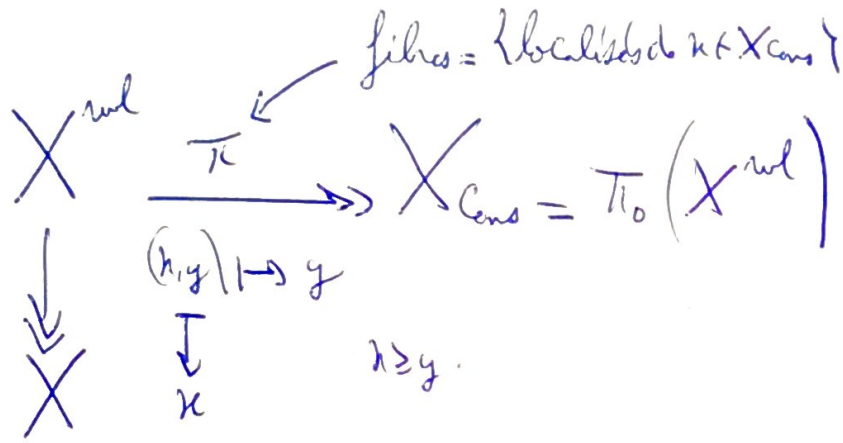 fibres = {localisés de x ∈ X_cons}
X^wl π X_cons = π_0(X^wl)
(x,y) ↦ y
X x x ≥ y.